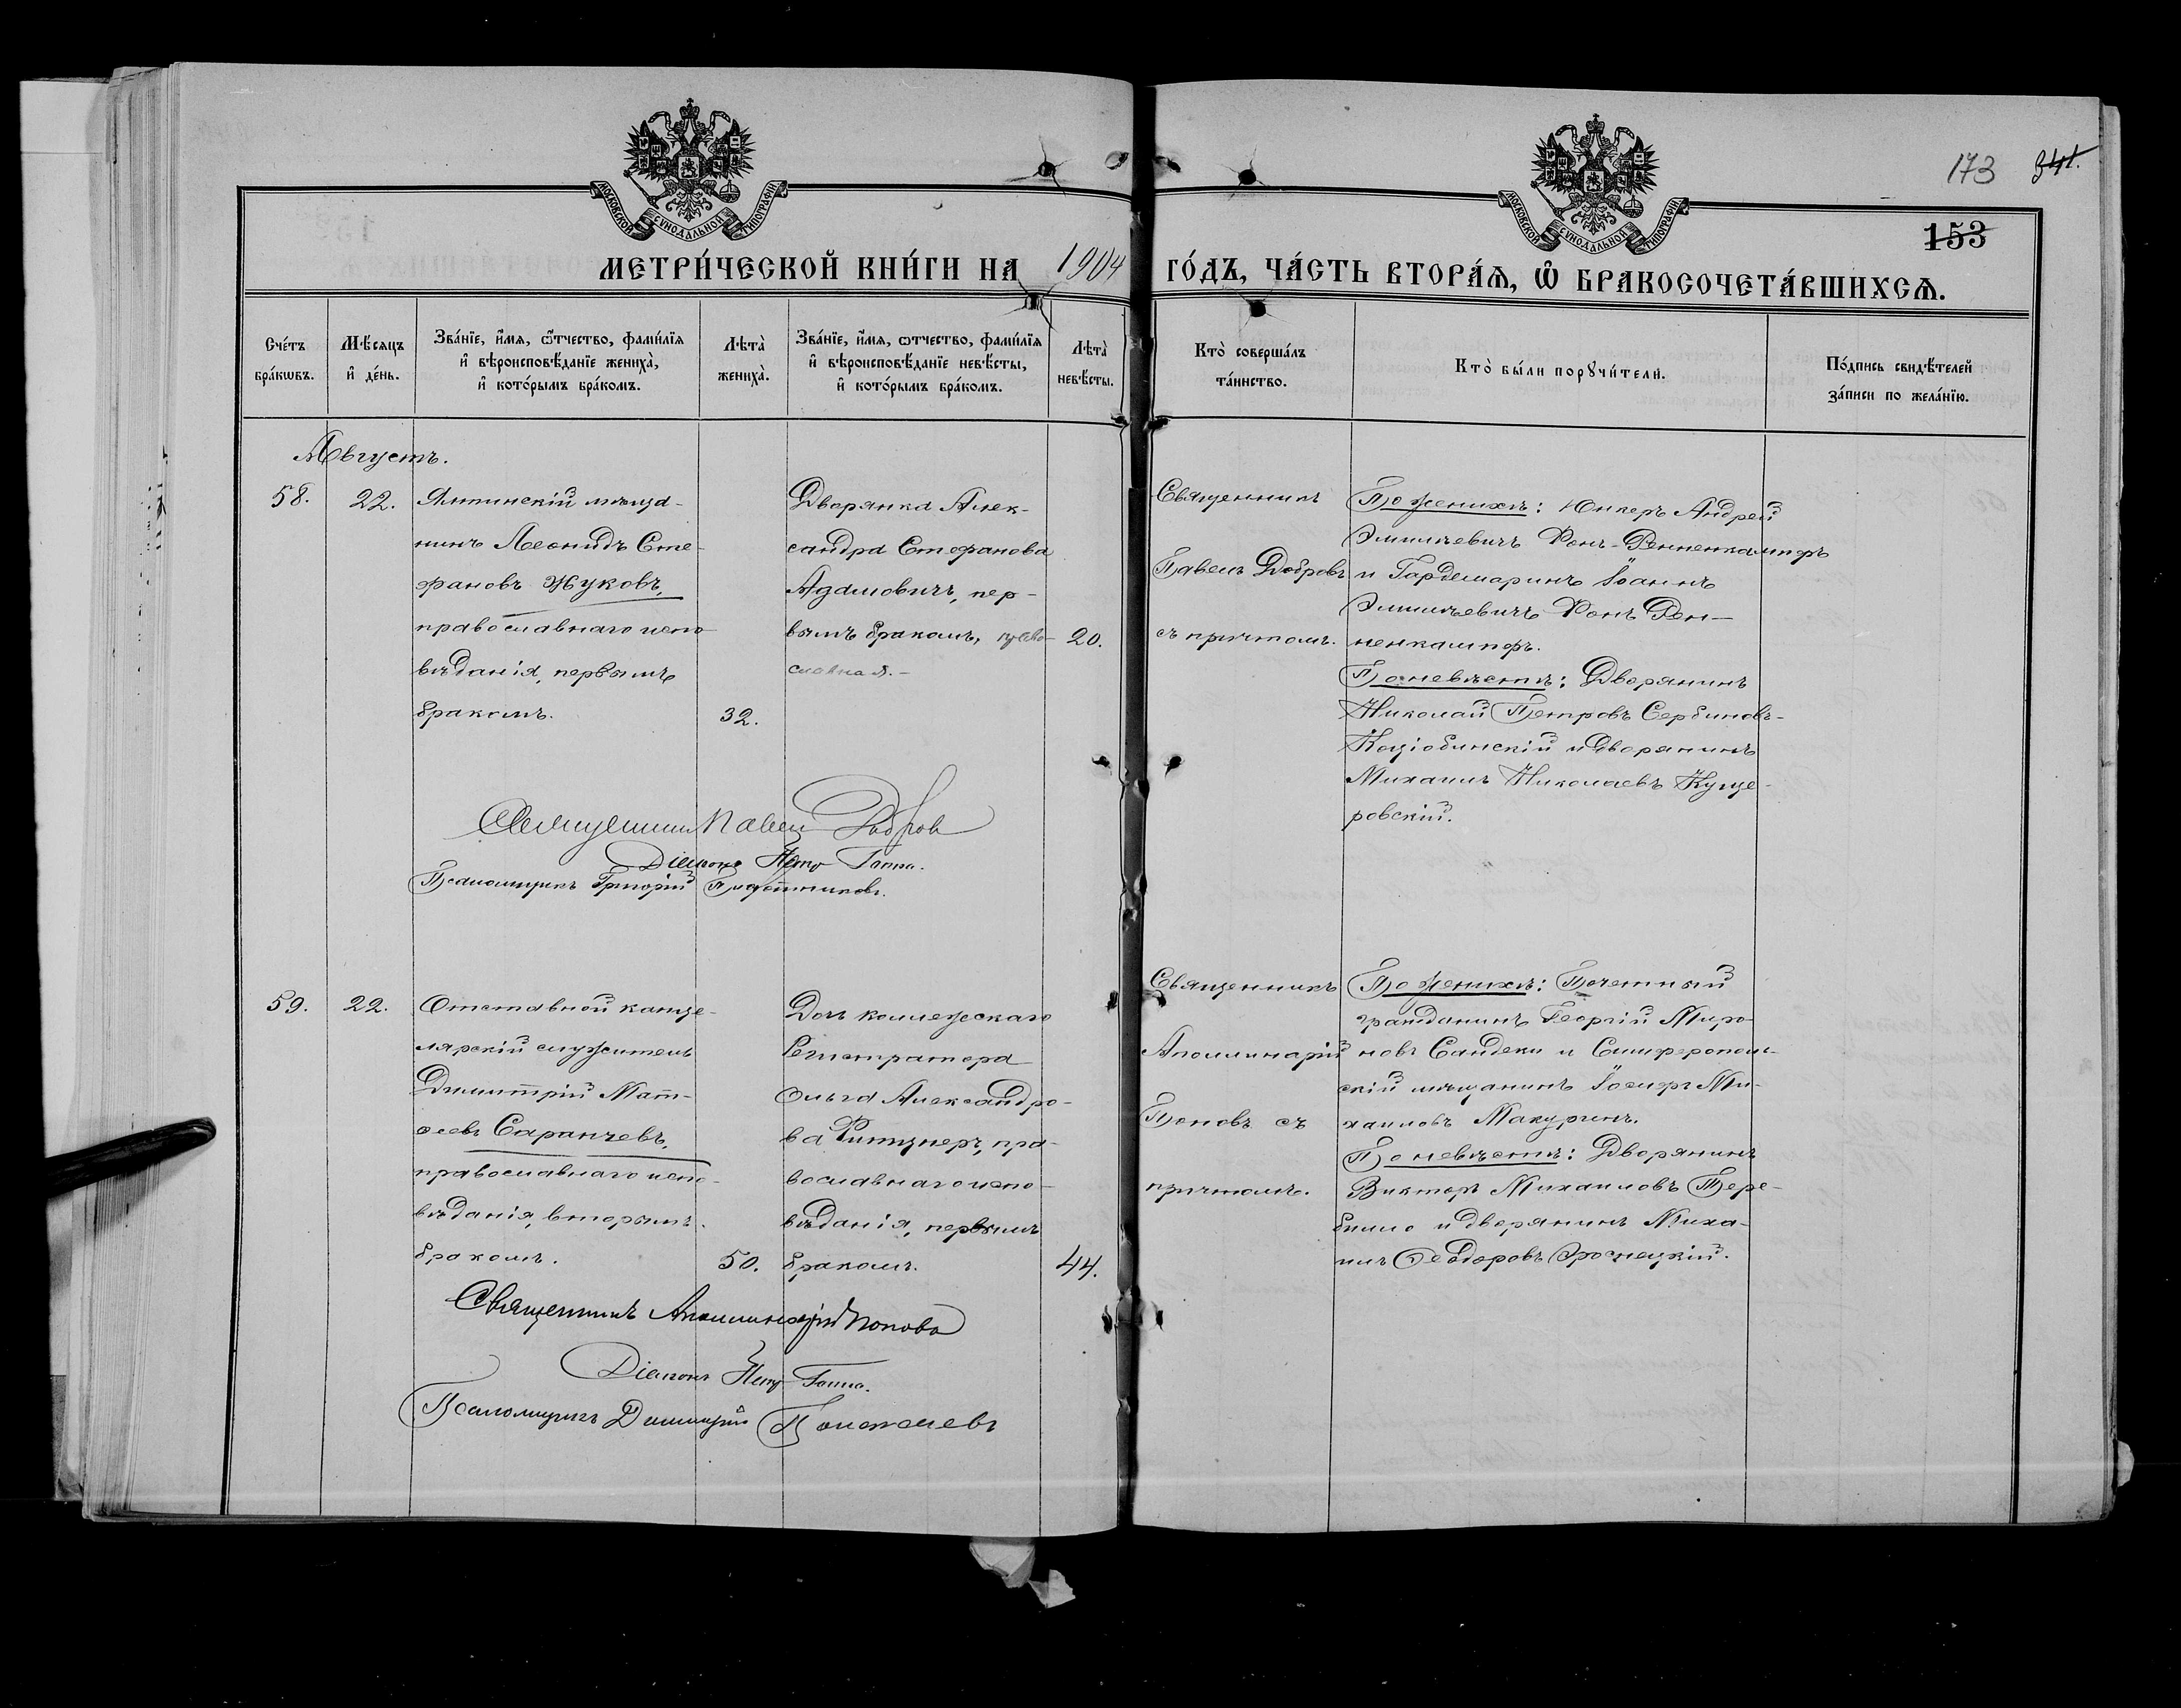 МОСКОВСКОЙ СѴНОДАЛЬНОЙ ТИПОГРАФІИ
МОСКОВСКОЙ СѴНОДАЛЬНОЙ ТИПОГРАФІИ
173
153
МЕТРИ́ЧЕСКОЙ КНИ́ГИ НА 1904 ГО́ДЪ, ЧА́СТЬ ВТОРА́Ѧ, Ѽ БРАКОСОЧЕТА́ВШИХСѦ.
Сче́тъ
бра́кѡвъ.
Мѣ́сяцъ
и҆ де́нь.
Зва́нїе, и҆́мя, ѻ҆́тчество, фами́лїя
и҆ вѣроисповѣ́данїе жениха̀,
и҆ кото́рымъ бра́комъ.
Лѣта̀
жениха̀.
Зва́нїе, и҆́мя, ѻтчество, фами́лїя
и҆ вѣроисповѣ́данїе невѣ́сты,
и҆ кото́рымъ бра́комъ.
Лѣта̀
невѣ́сты.
Кто̀ соверша́лъ
та́инство.
Кто̀ бы́ли порꙋчи́тели.
По́дпись свидѣ́телей
за́писи по жела́нїю.
Августъ.
58.
22.
Ялтинскій мѣща-
нинъ Леонидъ Сте-
фановъ Жуковъ,
православнаго испо-
вѣданія, первымъ
бракомъ.
32.
Дворянка Алек-
сандра Стефанова
Адамовичъ, пер-
вымъ бракомъ, право-
славная.-
20.
Священникъ
Павелъ Добровъ
съ причтомъ.
По женихѣ: Юнкеръ Андрей
Эмильевичъ Фонъ-Ренненкампфъ
и Гардемаринъ Іоаннъ
Эмильевичъ Фонъ Рен-
ненкампфъ.
По невѣстѣ: Дворянинъ
Николай Петровъ Сербиновъ-
Коціобинскій и Дворянинъ
Михаилъ Николаевъ Куще-
ровскій.
Священникъ Павелъ Добров
Діаконъ Петръ Гаппа.
Псаломщикъ Григорій
59.
22.
Отставной канце-
лярскій служитель
Димитрій Мат-
ѳеевъ Саранчевъ,
православнаго испо-
вѣданія, вторымъ
бракомъ.
50.
Дочь коллежскаго
Регистратора
Ольга Александро-
ва Фитцнеръ, пра-
вославнаго испо-
вѣданія, первымъ
бракомъ.
44.
Священникъ
Аполлинарій
Поповъ съ
причтомъ.
По женихѣ: Почетный
гражданинъ Георгій Миро-
новъ Сандеки и Симферополь-
скій мѣщанинъ Іосифъ Ми-
хаиловъ Макуринъ.
По невѣстѣ: Дворянинъ
Викторъ Михаиловъ Тере-
билло и дворянинъ Миха-
илъ Ѳеодоровъ
Священникъ Аполлинарій Поповъ
Діаконъ Петръ Гаппа.
Псаломщикъ Димитрій